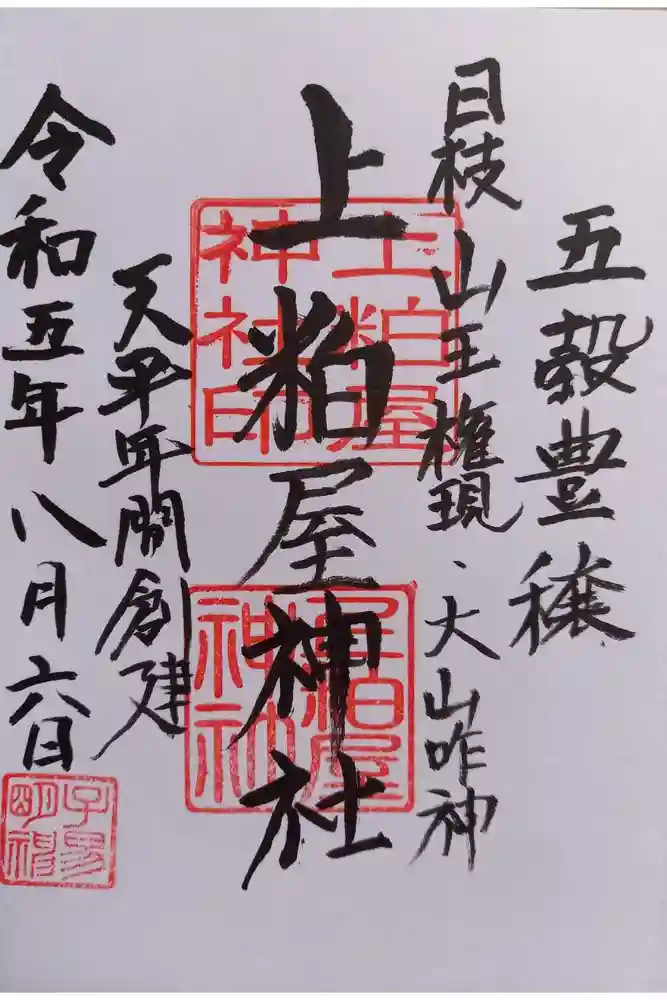 五穀豊穣
日枝山王権現、大山咋神
上粕屋神社
天平年間創建
令和五年八月六日
上粕屋
神社印